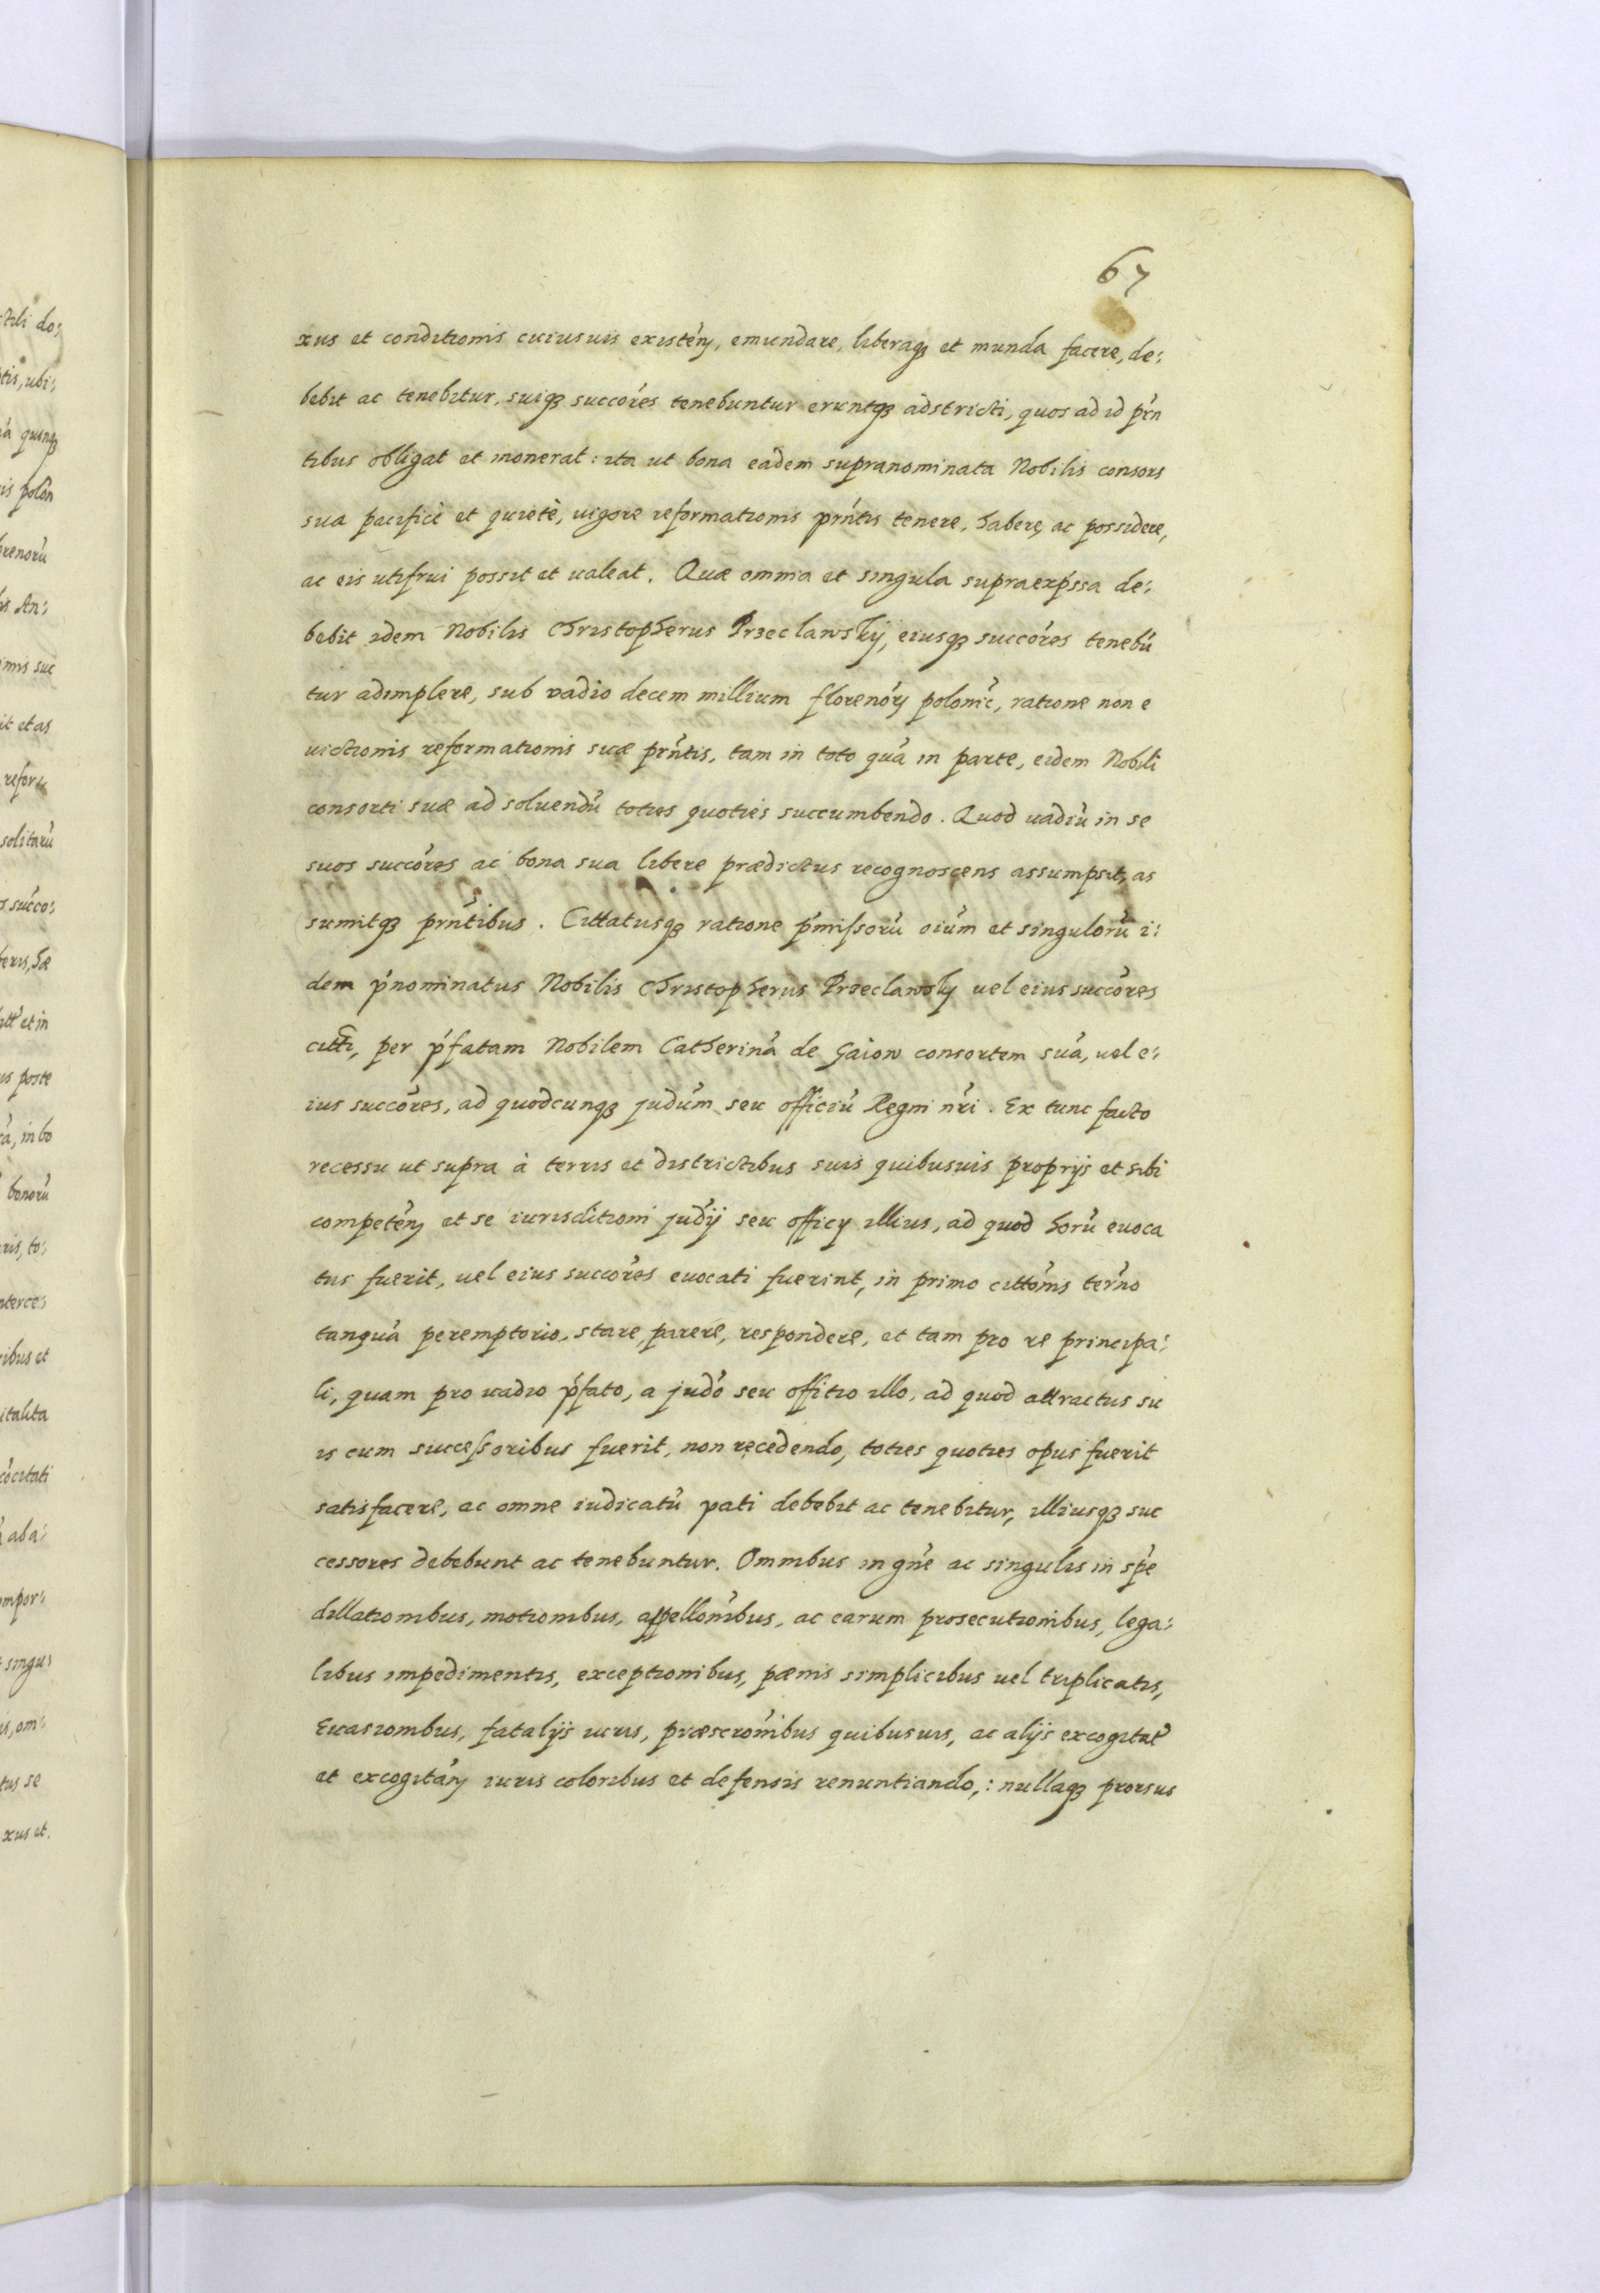 67
xus et conditionis cuiusuis existen̄, emundare, liberaq́ꝫ et munda facere, de:
bebit ac tenebitur, suiq́ꝫ succōres tenebuntur eruntq́ꝫ adstricti, quos ad id prn̄
tibus obligat et inonerat: ita ut bona eadem supranominata Nobilis consors
sua pacificè et quietè, uigore reformationis prn̄tis tenere, habere, ac possidere,
ac eis utifrui possit et ualeat. Quæ omnia et singula supraexp̄ssa de:
bebit idem Nobilis Christopherus Przeclawskÿ, eiusq́ꝫ succōres tenebū
tur adimplere, sub vadio decem millium florenōrꝫ polonic̄, ratione non e
uictionis reformationis suæ prn̄tis, tam in toto quā in parte, eidem Nobili
consorti suæ ad soluendū toties quoties succumbendo. Quod uadiū in se
suos succōres ac bona sua libere prædictus recognoscens assumpsit, as
sumitq́ꝫ prn̄tibus. Cittatusq́ꝫ ratione p̄missorū oīum et singulorū i:
dem p̄nominatus Nobilis Christopherus Przeclawsky uel eius succōres
citti, per p̄fatam Nobilem Catherinā de Gaiow consortem suā, uel e:
ius succōres, ad quodcunq́ꝫ judūm seu officiū Regni nr̄i. Ex tunc facto
recessu ut supra à terris et districtibus suis quibusuis proprijs et sibi
competen̄ et se iurisditioni judīj seu officy illius, ad quod horū euoca
tus fuerit, uel eius succōres euocati fuerint, in primo cittōnis ter̄no
tanquā peremptorio, stare, parere, respondere, et tam pro re principa:
li, quam pro uadio p̄fato, a judō seu offitio illo, ad quod attractus su
is cum successoribus fuerit, non recedendo, toties quoties opus fuerit
satisfacere, ac omne iudicatū pati debebit ac tenebitur, illiusq́ꝫ suc
cessores debebunt ac tenebuntur. Omnibus in gn̄e ac singulis in sp̄e
dillationibus, motionibus, appellōnibus, ac earum prosecutionibus, lega:
libus impedimentis, exceptionibus, pænis simplicibus uel triplicatis,
Euasionibus, fatalijs iuris, præscrōnibus quibusuis, ac alijs excogitat̄
et excogitan̄ iuris coloribus et defensis renuntiando,: nullaq́ꝫ prorsus